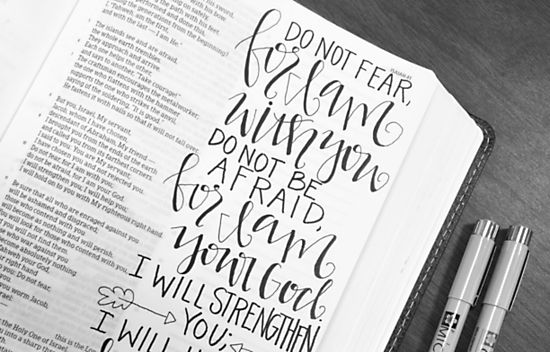 with his sword,
with his bow.
going on safely,
performed and done this,
the generations from the beginning?
"I, Yahweh, am the first,
and with the last—I am He."
The islands see and are afraid,
the whole earth trembles.
They approach and arrive.
Each one helps the other,
and says to another, "Take courage!"
The craftsman encourages the metalworker;
the one who flattens with the hammer
supports the one who strikes the anvil,
saying of the soldering, "It is good."
He fastens it with nails so that it will not fall over.
But you, Israel, My servant,
Jacob, whom I have chosen,
descendant of Abraham, My friend—
I brought you from the ends of the earth
and called you from its farthest corners.
I said to you: You are My servant;
I have chosen you and not rejected you.
Do not fear, for I am with you;
do not be afraid, for I am your God.
I will strengthen you; I will help you;
I will hold on to you with My righteous right hand.
Be sure that all who are enraged against you
will be ashamed and disgraced;
those who contend with you
will become as nothing and will perish.
You will look for those who contend with you,
but you will not find them.
Those who war against you
will become absolutely nothing.
Yahweh your God,
right hand
you: Do not fear,
you worm Jacob,
Israel:
the Holy One of Israel.
you into a sharp
ISAIAH 41
DO NOT FEAR,
for I am
with you
DO NOT BE
AFRAID,
for I am
your God.
I WILL STRENGTHEN
YOU;
I WILL
MIC